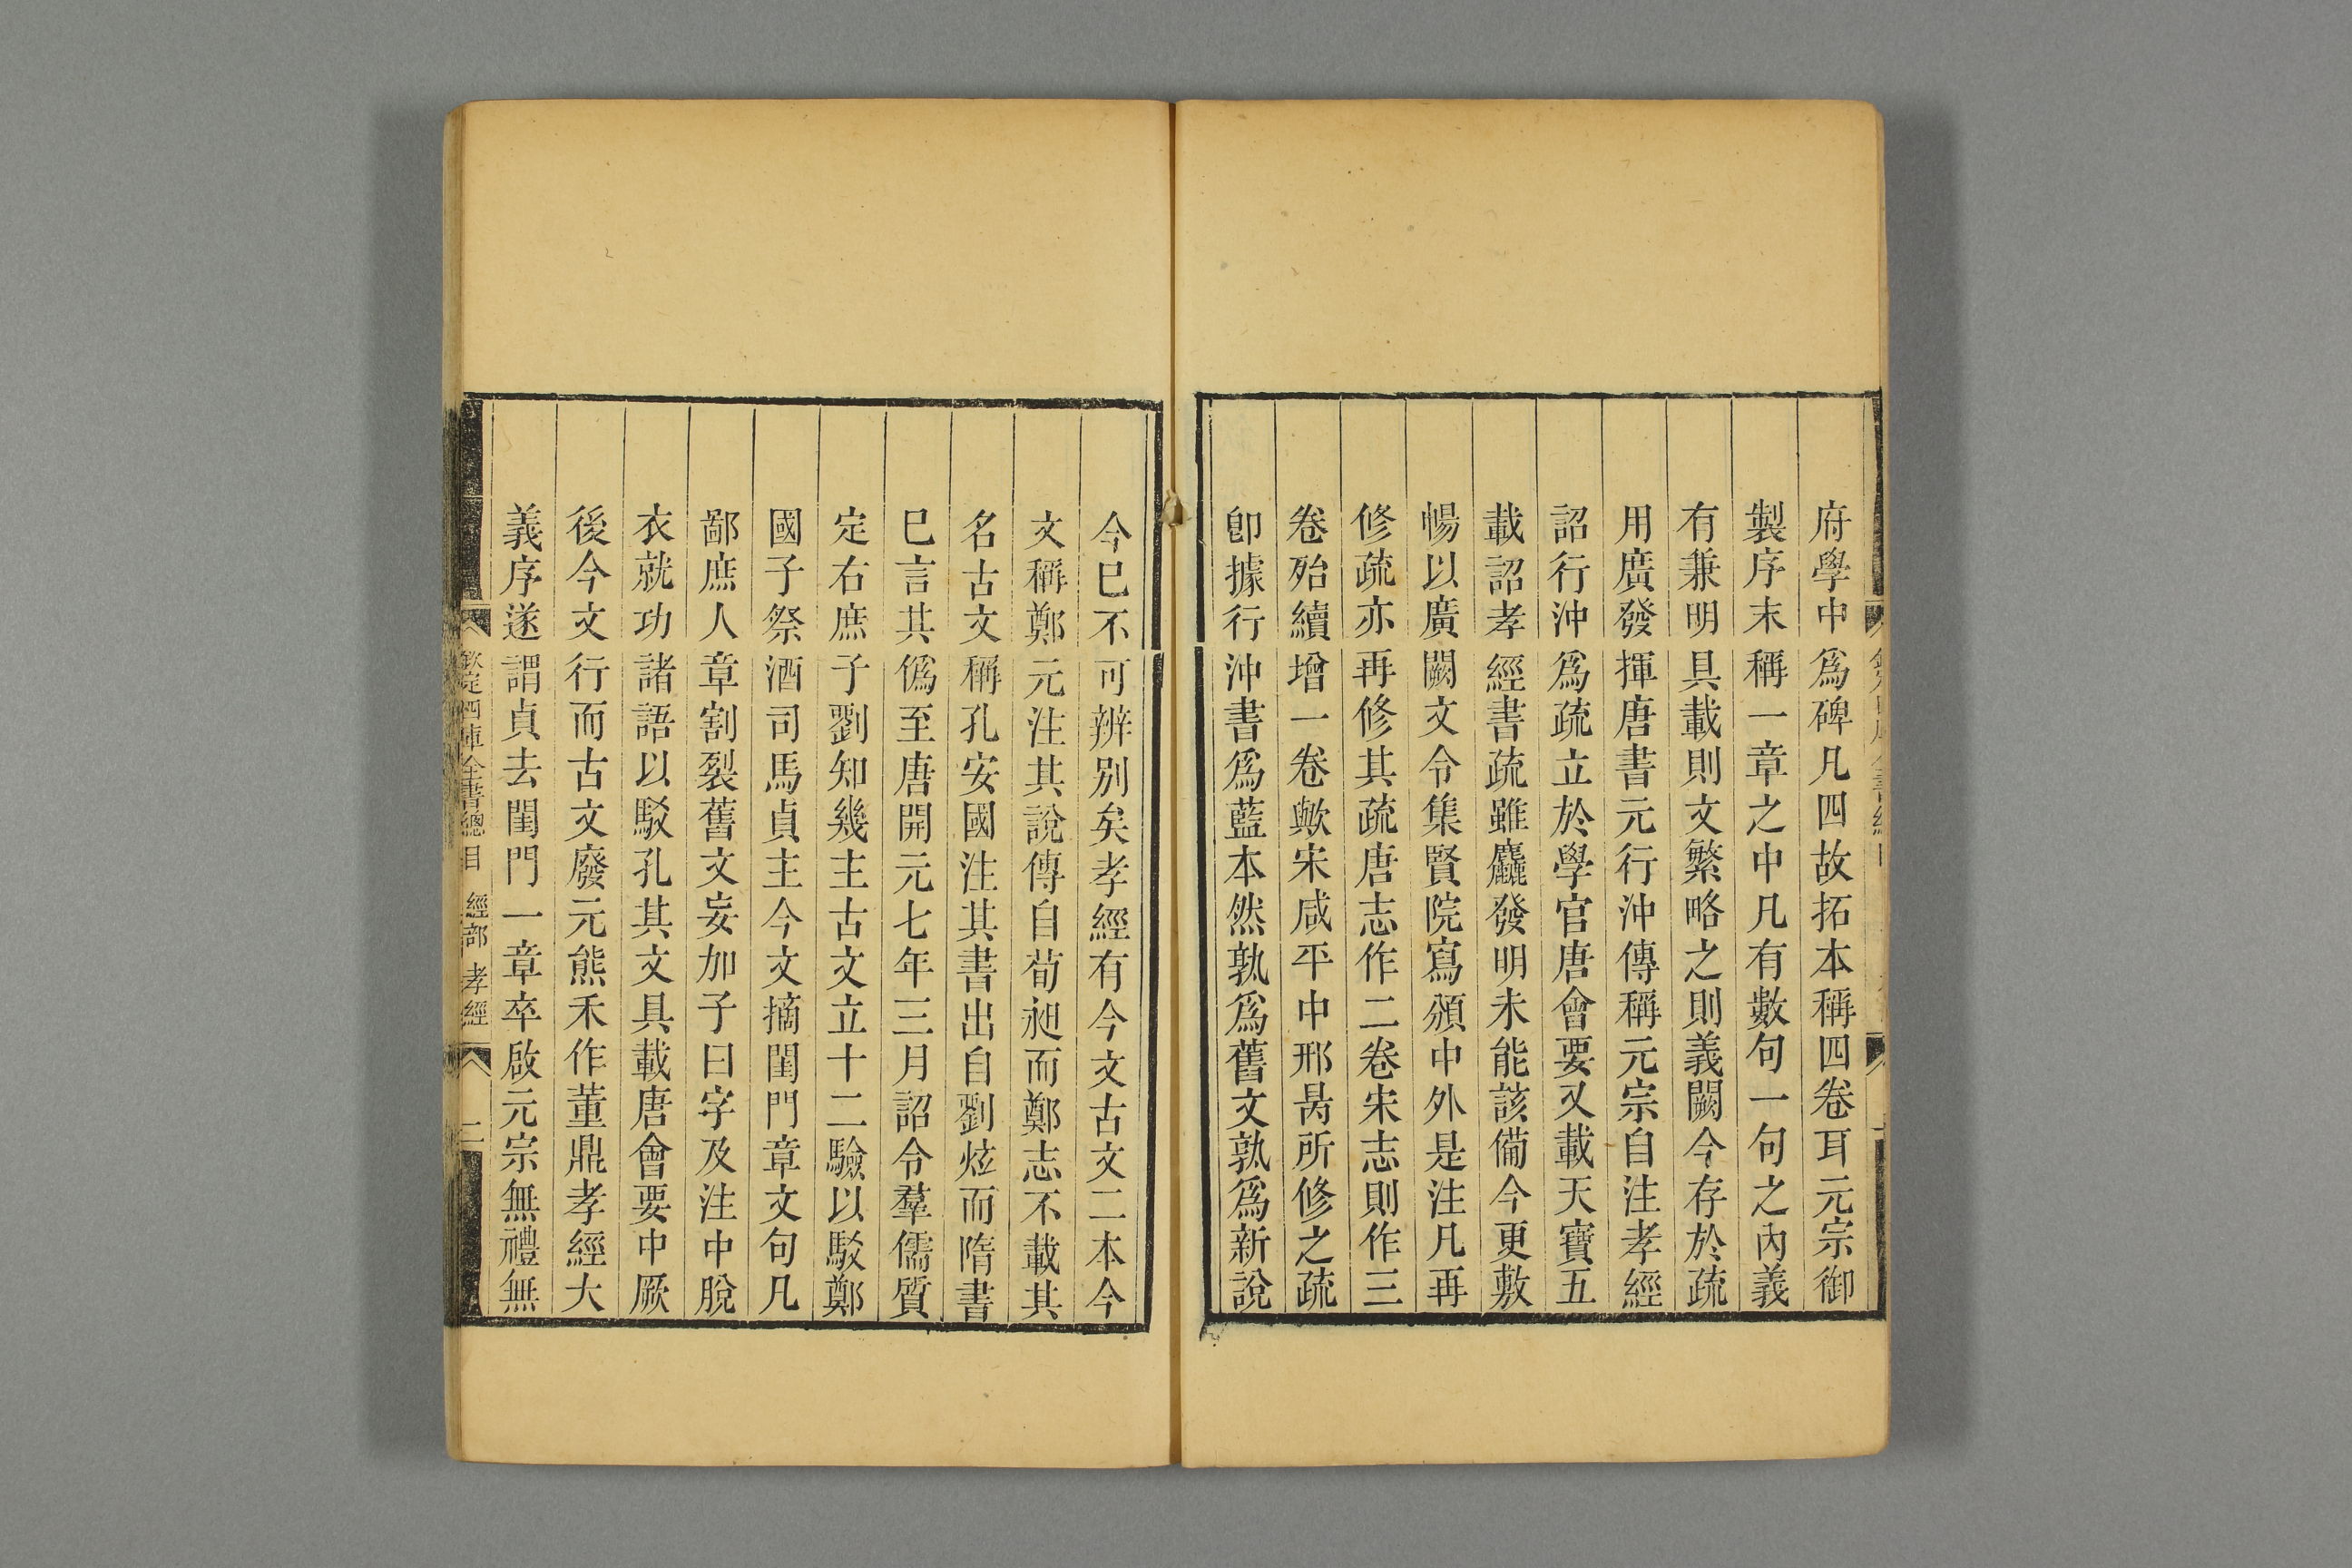 府學中爲碑凡四故拓本稱四卷耳元宗御
製序末稱一章之中凡有數句一句之內義
有兼明具載則文繁略之則義闕今存於疏
用廣發揮唐書元行沖傳稱元宗自注孝經
詔行沖爲疏立於學官唐會要又載天寶五
載詔孝經書疏雖麤發明未能該備今更敷
暢以廣闕文令集賢院寫頒中外是注凡再
修疏亦再修其疏唐志作二卷宋志則作三
卷殆續增一卷歟宋咸平中邢昺所修之疏
卽據行沖書爲藍本然孰爲舊文孰爲新說
今已不可辨別矣孝經有今文古文二本今
文稱鄭元注其說傳自荀昶而鄭志不載其
名古文稱孔安國注其書出自劉炫而隋書
已言其僞至唐開元七年三月詔令羣儒質
定右庶子劉知幾主古文立十二驗以駁鄭
國子祭酒司馬貞主今文摘閨門章文句凡
鄙庶人章割裂舊文妄加子曰字及注中脫
衣就功諸語以駁孔其文具載唐會要中厥
後今文行而古文廢元熊禾作董鼎孝經大
義序遂謂貞去閨門一章卒啟元宗無禮無
欽定四庫全書總目 經部 孝經 二